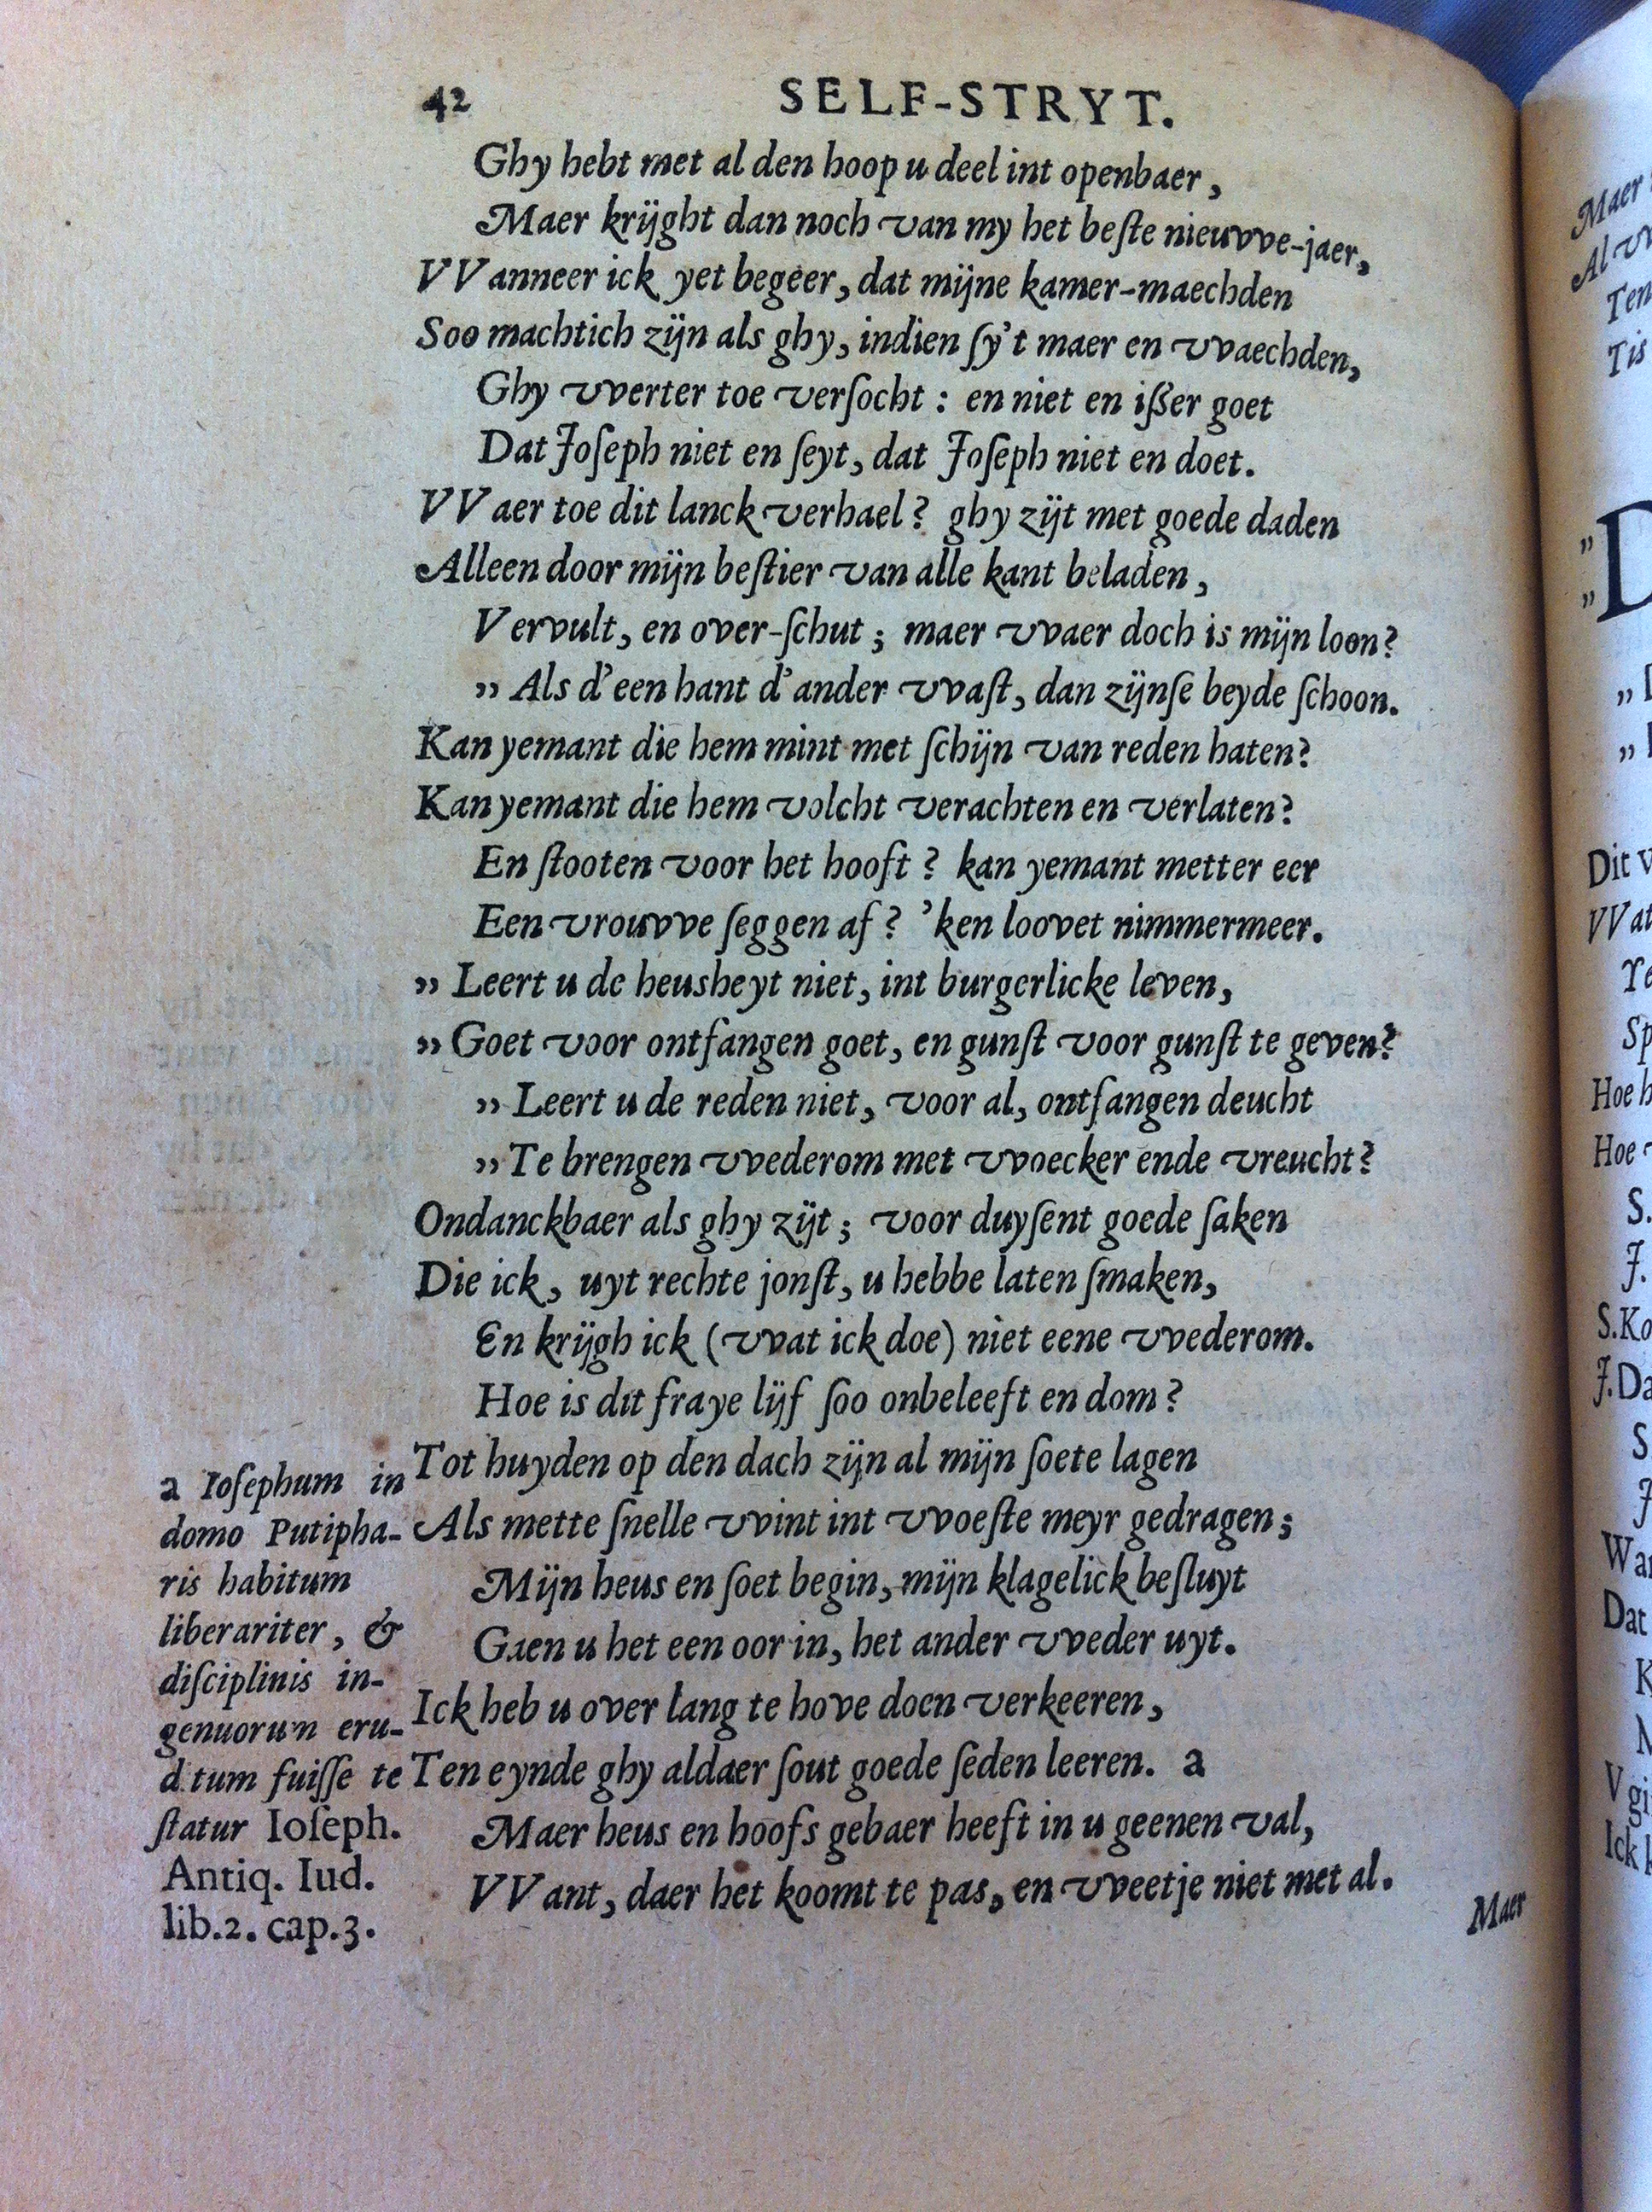 42 SELF-STRYT.
Ghy hebt met al den hoop u deel int openbaer,
Maer krijght dan noch van my het beſte nieuvve-jaer,
VVanneer ick yet begeer, dat mijne kamer-maechden
Soo machtich zijn als ghy, indien ſy't maer en vvaechden,
Ghy vverter toe verſocht: en niet en ißer goet
Dat Joſeph niet en ſeyt, dat Joſeph niet en doet.
VVaer toe dit lanck verhael? ghy zijt met goede daden
Alleen door mijn beſtier van alle kant beladen,
Vervult, en over-ſchut; maer vvaer doch is mijn loon?
„ Als d'een hant d'ander vvaſt, dan zijnſe beyde ſchoon.
Kan yemant die hem mint met ſchijn van reden haten?
Kan yemant die hem volcht verachten en verlaten?
En ſtooten voor het hooft? kan yemant metter eer
Een vrouvve ſeggen af? 'ken loovet nimmermeer.
„ Leert u de heusheyt niet, int burgerlicke leven,
„ Goet voor ontfangen goet, en gunſt voor gunſt te geven?
„ Leert u de reden niet, voor al, ontfangen deucht
„ Te brengen vvederom met vvoecker ende vreucht?
Ondanckbaer als ghy zijt; voor duyſent goede ſaken
Die ick, uyt rechte jonſt, u hebbe laten ſmaken,
En krijgh ick (vvat ick doe) niet eene vvederom.
Hoe is dit fraye lijf ſoo onbeleeft en dom?
Tot huyden op den dach zijn al mijn ſoete lagen
Als mette ſnelle vvint int vvoeſte meyr gedragen;
Mijn heus en ſoet begin, mijn klagelick beſluyt
Gaen u het een oor in, het ander vveder uyt.
Ick heb u over lang te hove doen verkeeren,
Ten eynde ghy aldaer ſout goede ſeden leeren. a
Maer heus en hoofs gebaer heeft in u geenen val,
VVant, daer het koomt te pas, en vveetje niet met al.
Maer
a Ioſephum in
domo Putipha-
ris habitum
liberariter, &
diſciplinis in-
genuorum eru-
d.tum fuiſſe te
ſtatur Ioſeph.
Antiq. Iud.
lib.2. cap.3.